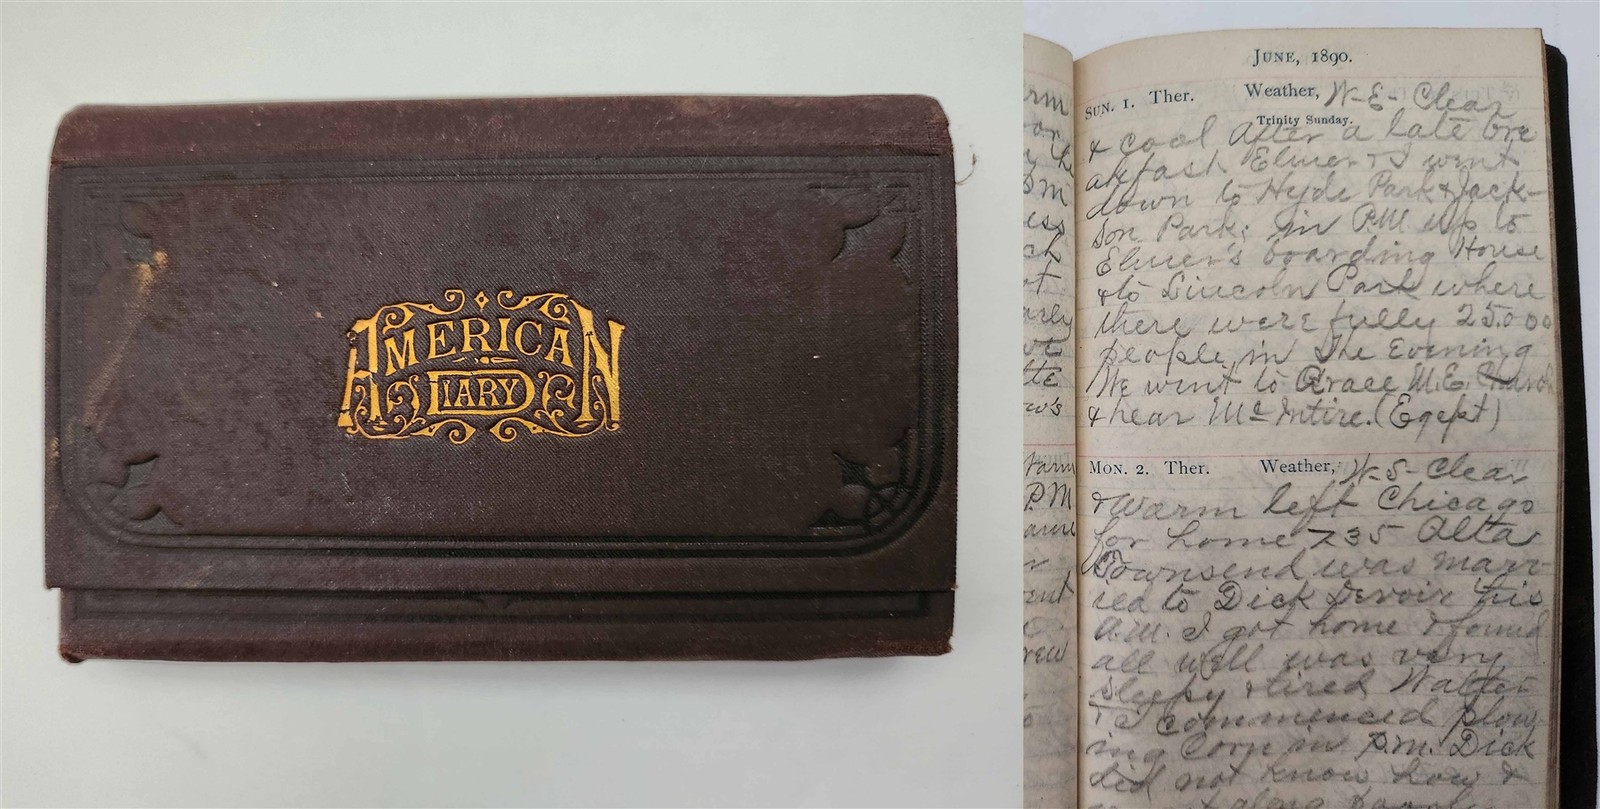 AMERICAN
DIARY
JUNE, 1890.
SUN. 1. Ther. Weather, W-E- Clear
Trinity Sunday.
& cool After a late bre
akfast Elmer & I went
down to Hyde Park & Jack-
son Park; in P.M. up to
Elmer's boarding House
& to Lincoln Park where
there were fully 25,000
people, in The Evening
We went to Grace M.E. Church
& hear McIntire. (Egept)
MON. 2. Ther. Weather, W-S- Clear
& Warm left Chicago
for home 735 Alta
Townsend was marr
ied to Dick Devoir this
A.M. I got home & found
all well was very
sleepy & tired Walter
& I commenced plow
ing Corn in P.M. Dick
did not know how &
along